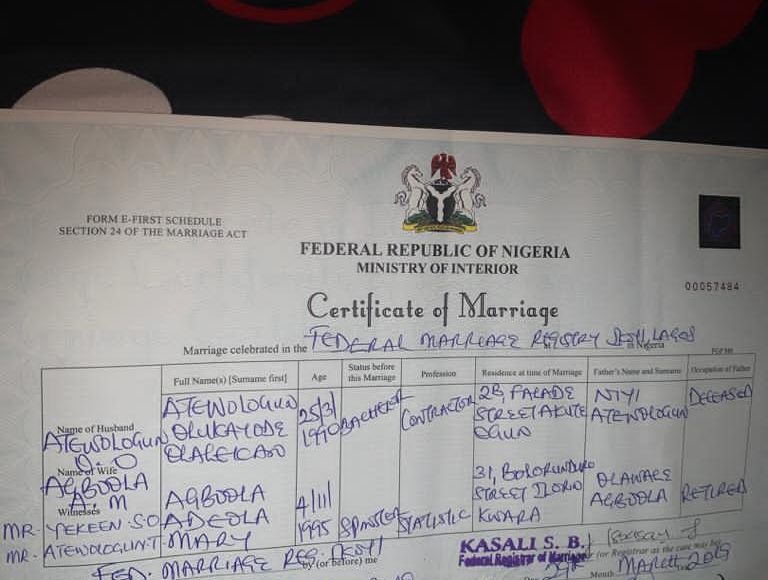 FORM E-FIRST SCHEDULE
SECTION 24 OF THE MARRIAGE ACT
FEDERAL REPUBLIC OF NIGERIA
MINISTRY OF INTERIOR
00057484
Certificate of Marriage
Marriage celebrated in the FEDERAL MARRIAGE REGISTRY LAGOS in Nigeria
Full Name(s) [Surname first] Age Status before this Marriage Profession Residence at time of Marriage Father's Name and Surname Occupation of Father
Name of Husband
ATEWOLOGUN
O. O
ATEWOLOGUN
OLUKAYODE
25/3/
1990
BACHELOR
CONTRACTOR
2B, FALADE
STREET AKUTE
OGUN
NIYI
ATEWOLOGUN
DECEASED
Name of Wife
AGBOOLA
A. M
AGBOOLA
ADEOLA
MARY
4/11/
1995
SPINSTER
STATISTIC
31,
STREET ILORIN
KWARA
OLAWALE
AGBOOLA
RETIRED
Witnesses
MR. YEKEEN . S.O
MR. ATEWOLOGUN.T
FED. MARRIAGE REG.
by (or before) me
KASALI S. B.
Federal Registrar of Marriage
(or Registrar as the case may be)
Month MARCH, 2019